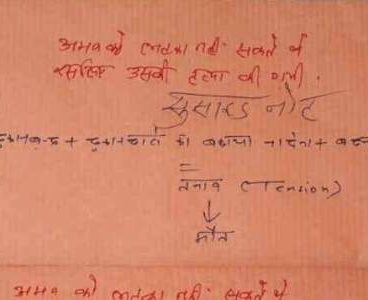 अमन को लटका नहीं सकते थे
इसलिए उसकी हत्या की गयी .
सुसाइड नोट
+ का बकाया ना देना +
=
तनाव (Tension)
↓
मौत
अमन को लटका नहीं सकते थे